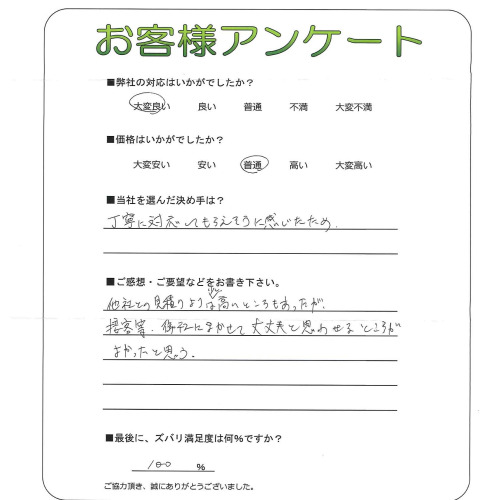 お客様アンケート
■弊社の対応はいかがでしたか？
大変良い 良い 普通 不満 大変不満
■価格はいかがでしたか？
大変安い 安い 普通 高い 大変高い
■当社を選んだ決め手は？
丁寧に対応してもらえそうに感じたため.
■ご感想・ご要望などをお書き下さい。
他社との見積りよりは高いところもあったが、
接客等、御社にまかせて大丈夫と思わせるところが
よかったと思う.
■最後に、ズバリ満足度は何%ですか？
100 %
ご協力頂き、誠にありがとうございました。